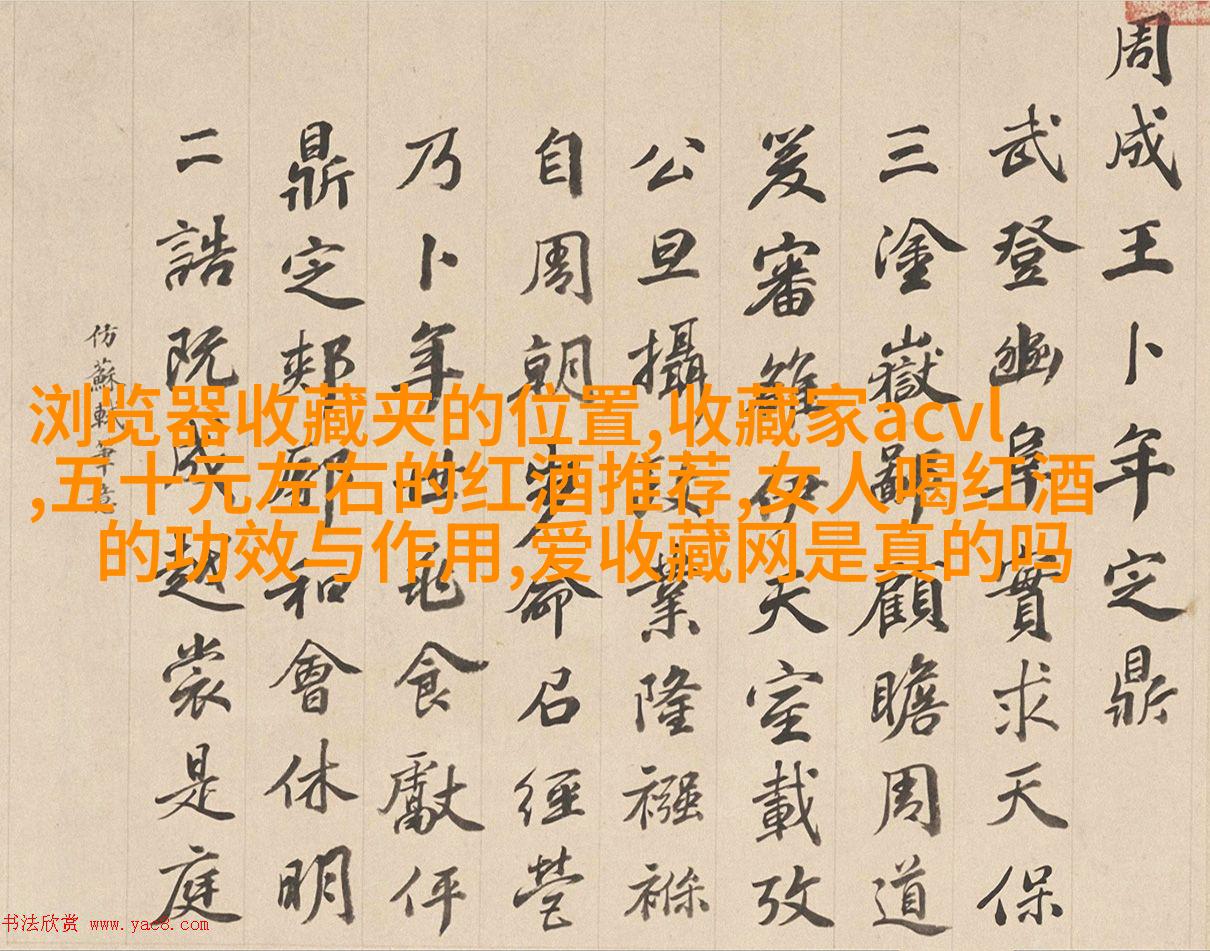 周成王卜年定鼎
武登幽阜實求天保
三塗嶽鄙顧瞻周道
爰審雒伊天室載攷
公旦攝政業隆襁褓
自周朝步命召經營
乃卜年世兆食獻伻
鼎定郟鄏和會休明
二誥既成越裳是庭
仿蘇軾筆意
浏览器收藏夹的位置,收藏家acvl
,五十元左右的红酒推荐,女人喝红酒
的功效与作用,爱收藏网是真的吗
书法欣赏 www.yac8.com